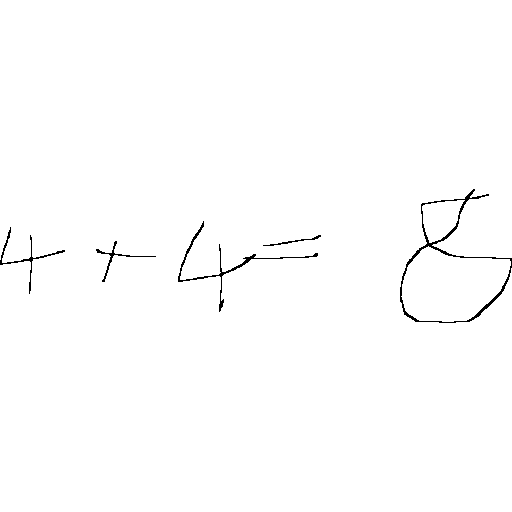 4 + 4 = 8